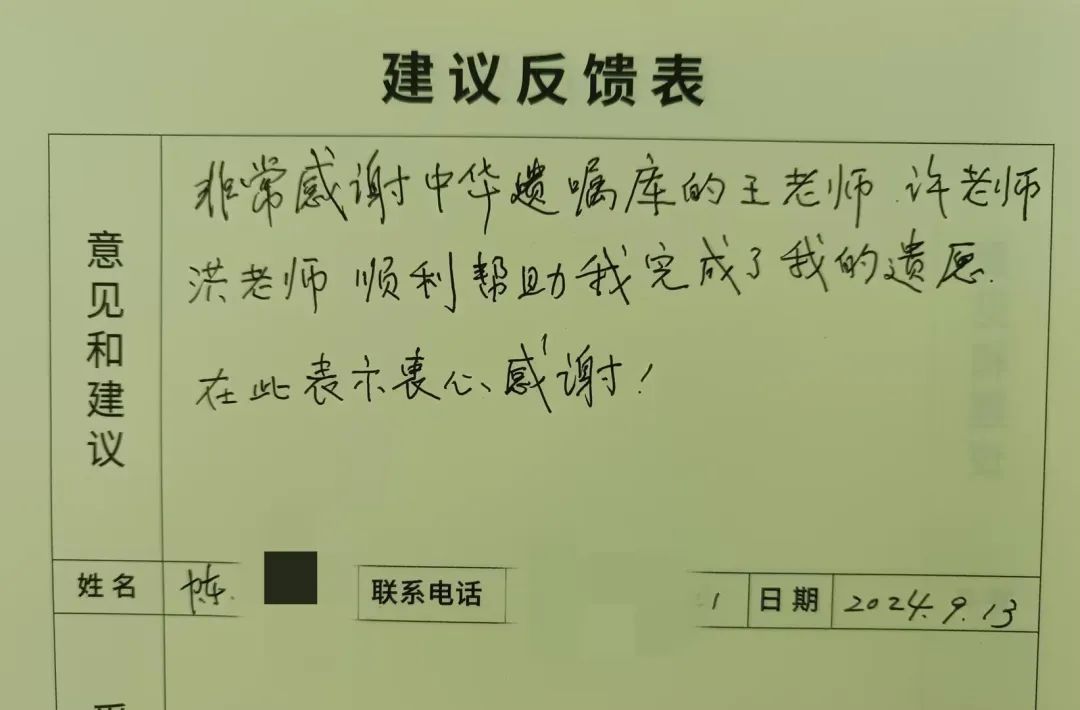 建议反馈表
意见和建议
非常感谢中华遗嘱库的王老师.许老师
洪老师 顺利帮助我完成了我的遗愿.
在此表示衷心感谢!
姓名
联系电话
1
日期
2024.9.13